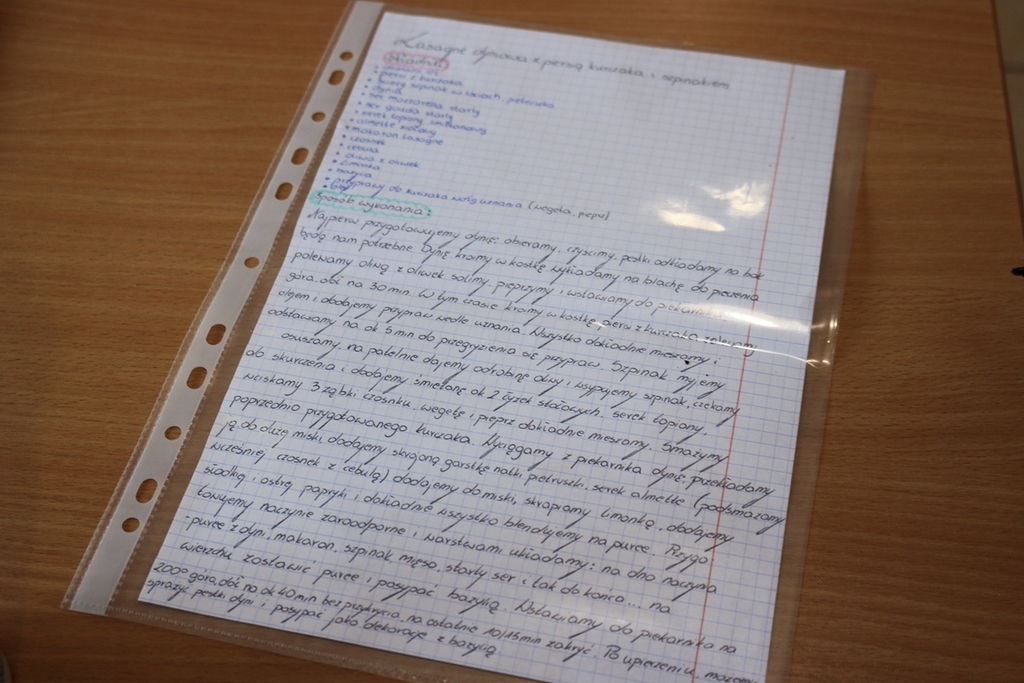 Lasagne dyniowa z piersią kurczaka i szpinakiem
Składniki:
• pierś z kurczaka
• świeży szpinak w liściach, pietruszka
• dynia
• ser mozzarella starty
• ser gouda starty
• serek topiony śmietankowy
• almette ziołowy
• makaron lasagne
• czosnek
• cebula
• oliwa z oliwek
• limonka
• bazylia
• przyprawy do kurczaka wedłg uznania (wegeta, pieprz)
Sposób wykonania:
Najpierw przygotowujemy dynię: obieramy, czyścimy, pestki odkładamy na bok
będą nam potrzebne. Dynię kroimy w kostkę wykładamy na blachę do pieczenia
polewamy oliwą z oliwek solimy, pieprzymy i wstawiamy do piekarnika
góra, dół na 30 min. W tym czasie kroimy w kostkę pierś z kurczaka, zalewamy
olejem i dodajemy przypraw wedle uznania. Wszystko dokładnie mieszamy i
odstawiamy na ok 5 min do przegryzienia się przypraw. Szpinak myjemy
osuszamy, na patelnie dajemy odrobinę oliwy i wsypujemy szpinak, czekamy
do skurczenia i dodajemy śmietanę ok 2 łyżek stołowych, serek topiony,
wciskamy 3 ząbki czosnku, wegetę i pieprz dokładnie mieszamy. Smażymy
poprzednio przygotowanego kurczaka. Wyciągamy z piekarnika dynię, przekładamy
ją do dużej miski, dodajemy skrojoną garstkę natki pietruszki, serek almette (podsmażamy
wcześniej czosnek z cebulą) dodajemy do miski, skrapiamy limonką, dodajemy
słodkiej i ostrej papryki i dokładnie wszystko blendujemy na puree. Przygo
towujemy naczynie żaroodporne i warstwami układamy: na dno naczyna
-puree z dyni, makaron, szpinak, mięso, starty ser i tak do końca... na
wierzchu zostawić puree i posypać bazylią. Wstawiamy do piekarnika na
200° góra, dół na ok 40 min bez przykrycia, na ostatnie 10/15 min zakryć. Po upieczeniu możemy
oprażyć pestki dyni i posypać jako dekorację z bazylią